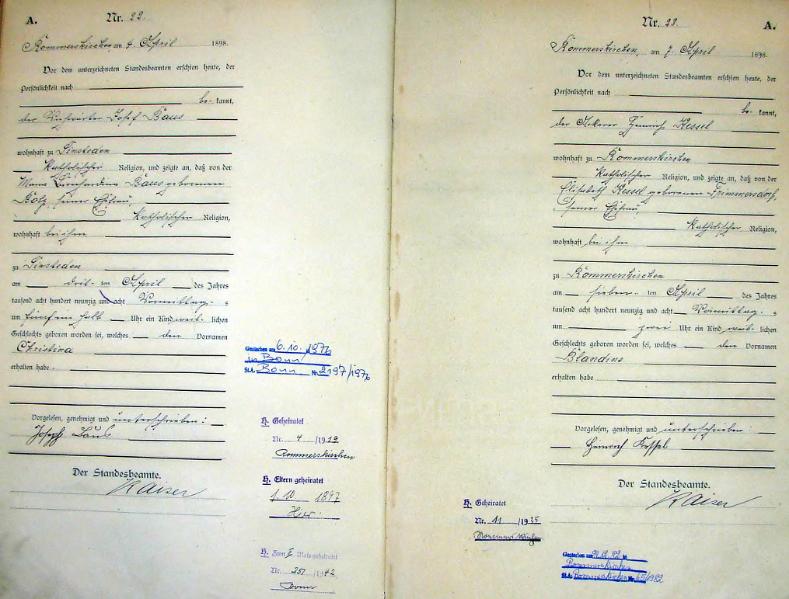 A.
Nr. 22.
Rommerskirchen am 4. April 1898.
Vor dem unterzeichneten Standesbeamten erschien heute, der
Persönlichkeit nach
be kannt,
der Josef Baus
wohnhaft zu Sinsteden
Katholischer Religion, und zeigte an, daß von der
Baus geborenen
seiner Ehefrau,
Katholischer Religion,
wohnhaft bei ihm
zu Sinsteden
am drit- ten April des Jahres
tausend acht hundert neunzig und acht Vormittag- s
um fünf ein halb Uhr ein Kind weib- lichen
Geschlechts geboren worden sei, welches den Vornamen
Christina
erhalten habe.
Vorgelesen, genehmigt und unterschrieben:
Joseph Baus
Der Standesbeamte.
Kaiser
Gestorben am 6.10.1976
in Bonn
St.A. Bonn Nr. 2197/1976
H. Geheiratet
Nr. 4 /1929
Rommerskirchen
H. Eltern geheiratet
1897
Hier.
H. Zum II. Mal geheiratet
Nr.
Nr. 23.
A.
Rommerskirchen, am 7. April 1898.
Vor dem unterzeichneten Standesbeamten erschien heute, der
Persönlichkeit nach
be kannt,
der Ackerer Heinrich Kessel
wohnhaft zu Rommerskirchen
Katholischer Religion, und zeigte an, daß von der
Elisabeth Kessel geborenen Frimmersdorf,
seiner Ehefrau,
Katholischer Religion,
wohnhaft bei ihm
zu Rommerskirchen
am sieben- ten April des Jahres
tausend acht hundert neunzig und acht Vormittag- s
um zwei Uhr ein Kind weib- lichen
Geschlechts geboren worden sei, welches den Vornamen
Blandina
erhalten habe.
Vorgelesen, genehmigt und unterschrieben:
Heinrich Kessel
Der Standesbeamte.
Kaiser
H. Geheiratet
Nr. 11 /19
Gestorben am in
Rommerskirchen
St.A. Rommerskirchen